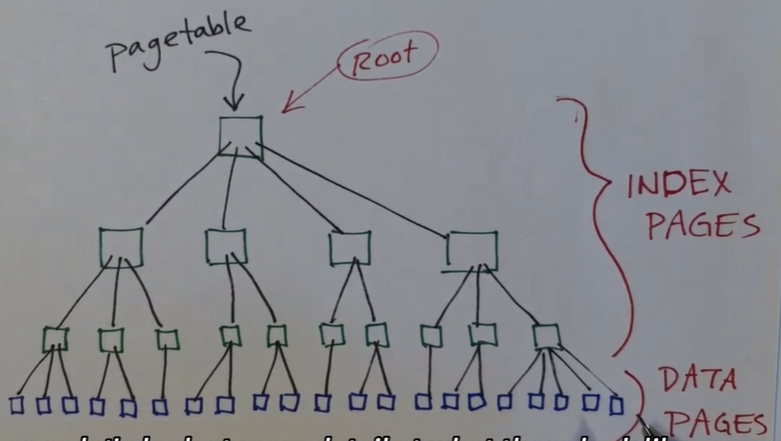 pagetable
Root
INDEX
PAGES
DATA
PAGES